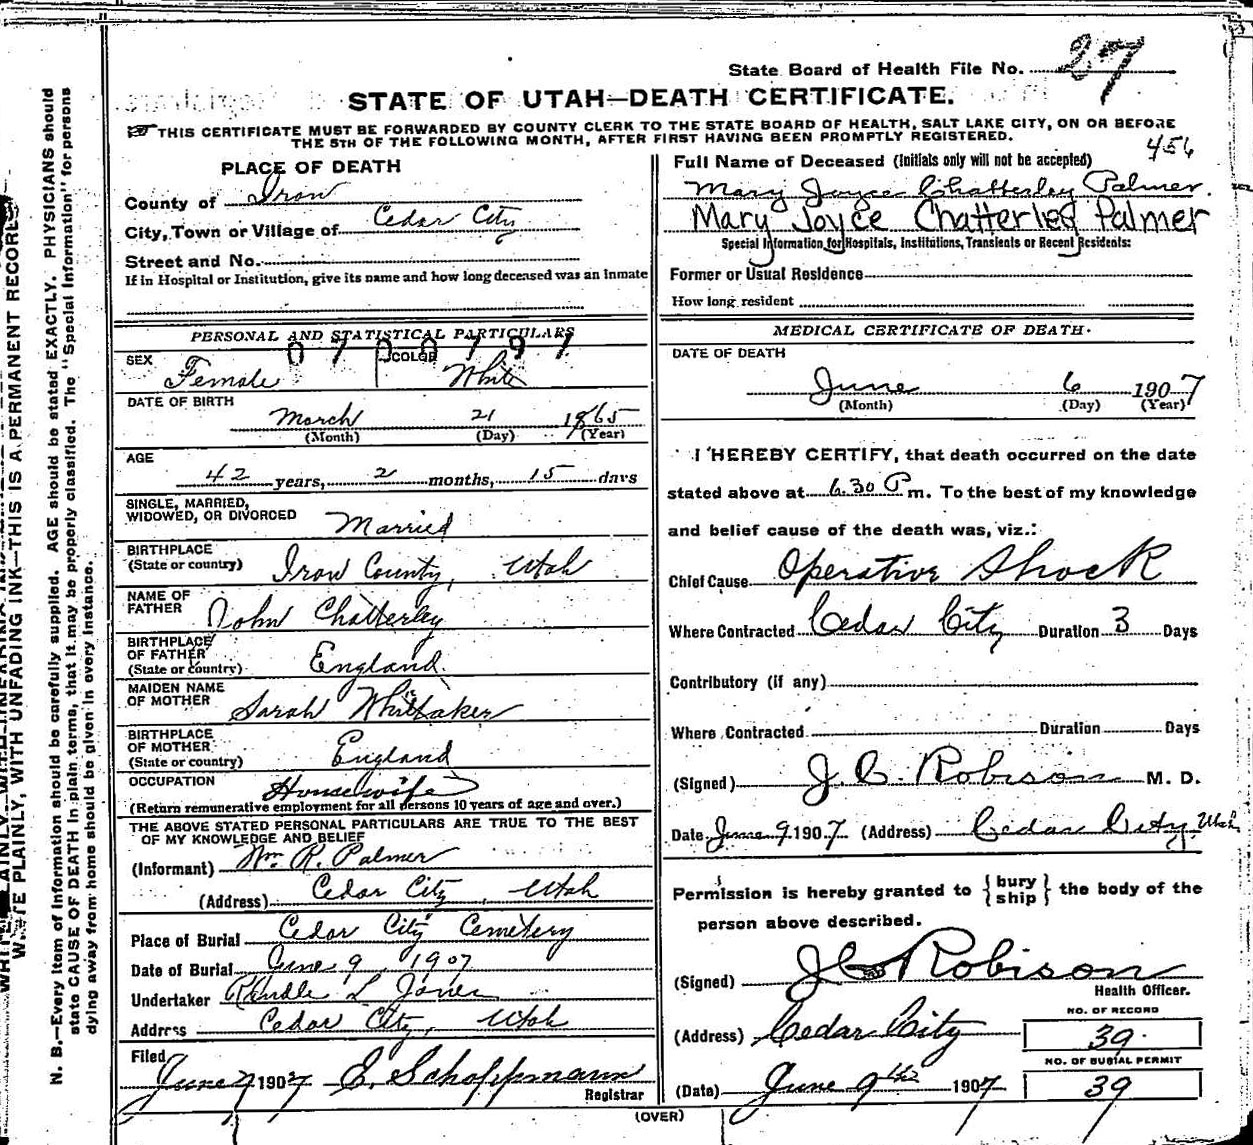 State Board of Health File No. 27
STATE OF UTAH—DEATH CERTIFICATE.
THIS CERTIFICATE MUST BE FORWARDED BY COUNTY CLERK TO THE STATE BOARD OF HEALTH, SALT LAKE CITY, ON OR BEFORE
THE 5TH OF THE FOLLOWING MONTH, AFTER FIRST HAVING BEEN PROMPTLY REGISTERED.
456
PLACE OF DEATH
County of Iron
City, Town or Village of Cedar City
Street and No.
If in Hospital or Institution, give its name and how long deceased was an inmate
Full Name of Deceased (Initials only will not be accepted)
Mary Joyce Chatterley Palmer.
Mary Joyce Chatterley Palmer
Special Information for Hospitals, Institutions, Transients or Recent Residents:
Former or Usual Residence
How long resident
PERSONAL AND STATISTICAL PARTICULARS
0700797
SEX Female
COLOR White
DATE OF BIRTH
March 21 1865
(Month) (Day) (Year)
AGE
42 years, 2 months, 15 days
SINGLE, MARRIED,
WIDOWED, OR DIVORCED Married
BIRTHPLACE
(State or country) Iron County, Utah
NAME OF
FATHER John Chatterley
BIRTHPLACE
OF FATHER
(State or country) England
MAIDEN NAME
OF MOTHER Sarah Whittaker
BIRTHPLACE
OF MOTHER
(State or country) England
OCCUPATION Housewife
(Return remunerative employment for all persons 10 years of age and over.)
THE ABOVE STATED PERSONAL PARTICULARS ARE TRUE TO THE BEST
OF MY KNOWLEDGE AND BELIEF
(Informant) Wm R. Palmer
(Address) Cedar City, Utah
Place of Burial Cedar City Cemetery
Date of Burial June 9, 1907
Undertaker L. Jones
Address Cedar City, Utah
Filed
June 1907 E. Schoppmann
Registrar
MEDICAL CERTIFICATE OF DEATH.
DATE OF DEATH
June 6 1907
(Month) (Day) (Year)
I HEREBY CERTIFY, that death occurred on the date
stated above at 6.30 P m. To the best of my knowledge
and belief cause of the death was, viz.:
Chief Cause Operative Shock
Where Contracted Cedar City Duration 3 Days
Contributory (if any)
Where Contracted Duration Days
(Signed) J. C. Robison M. D.
Date June 9 1907 (Address) Cedar City, Utah
Permission is hereby granted to { bury ship } the body of the
person above described.
(Signed) J C Robison
Health Officer.
(Address) Cedar City
NO. OF RECORD
39
NO. OF BURIAL PERMIT
39
(Date) June 9th 1907
(OVER)
WRITE PLAINLY, WITH UNFADING INK—THIS IS A PERMANENT RECORD
N. B.—Every item of information should be carefully supplied. AGE should be stated EXACTLY. PHYSICIANS should
state CAUSE OF DEATH in plain terms, that it may be properly classified. The "Special Information" for persons
dying away from home should be given in every instance.